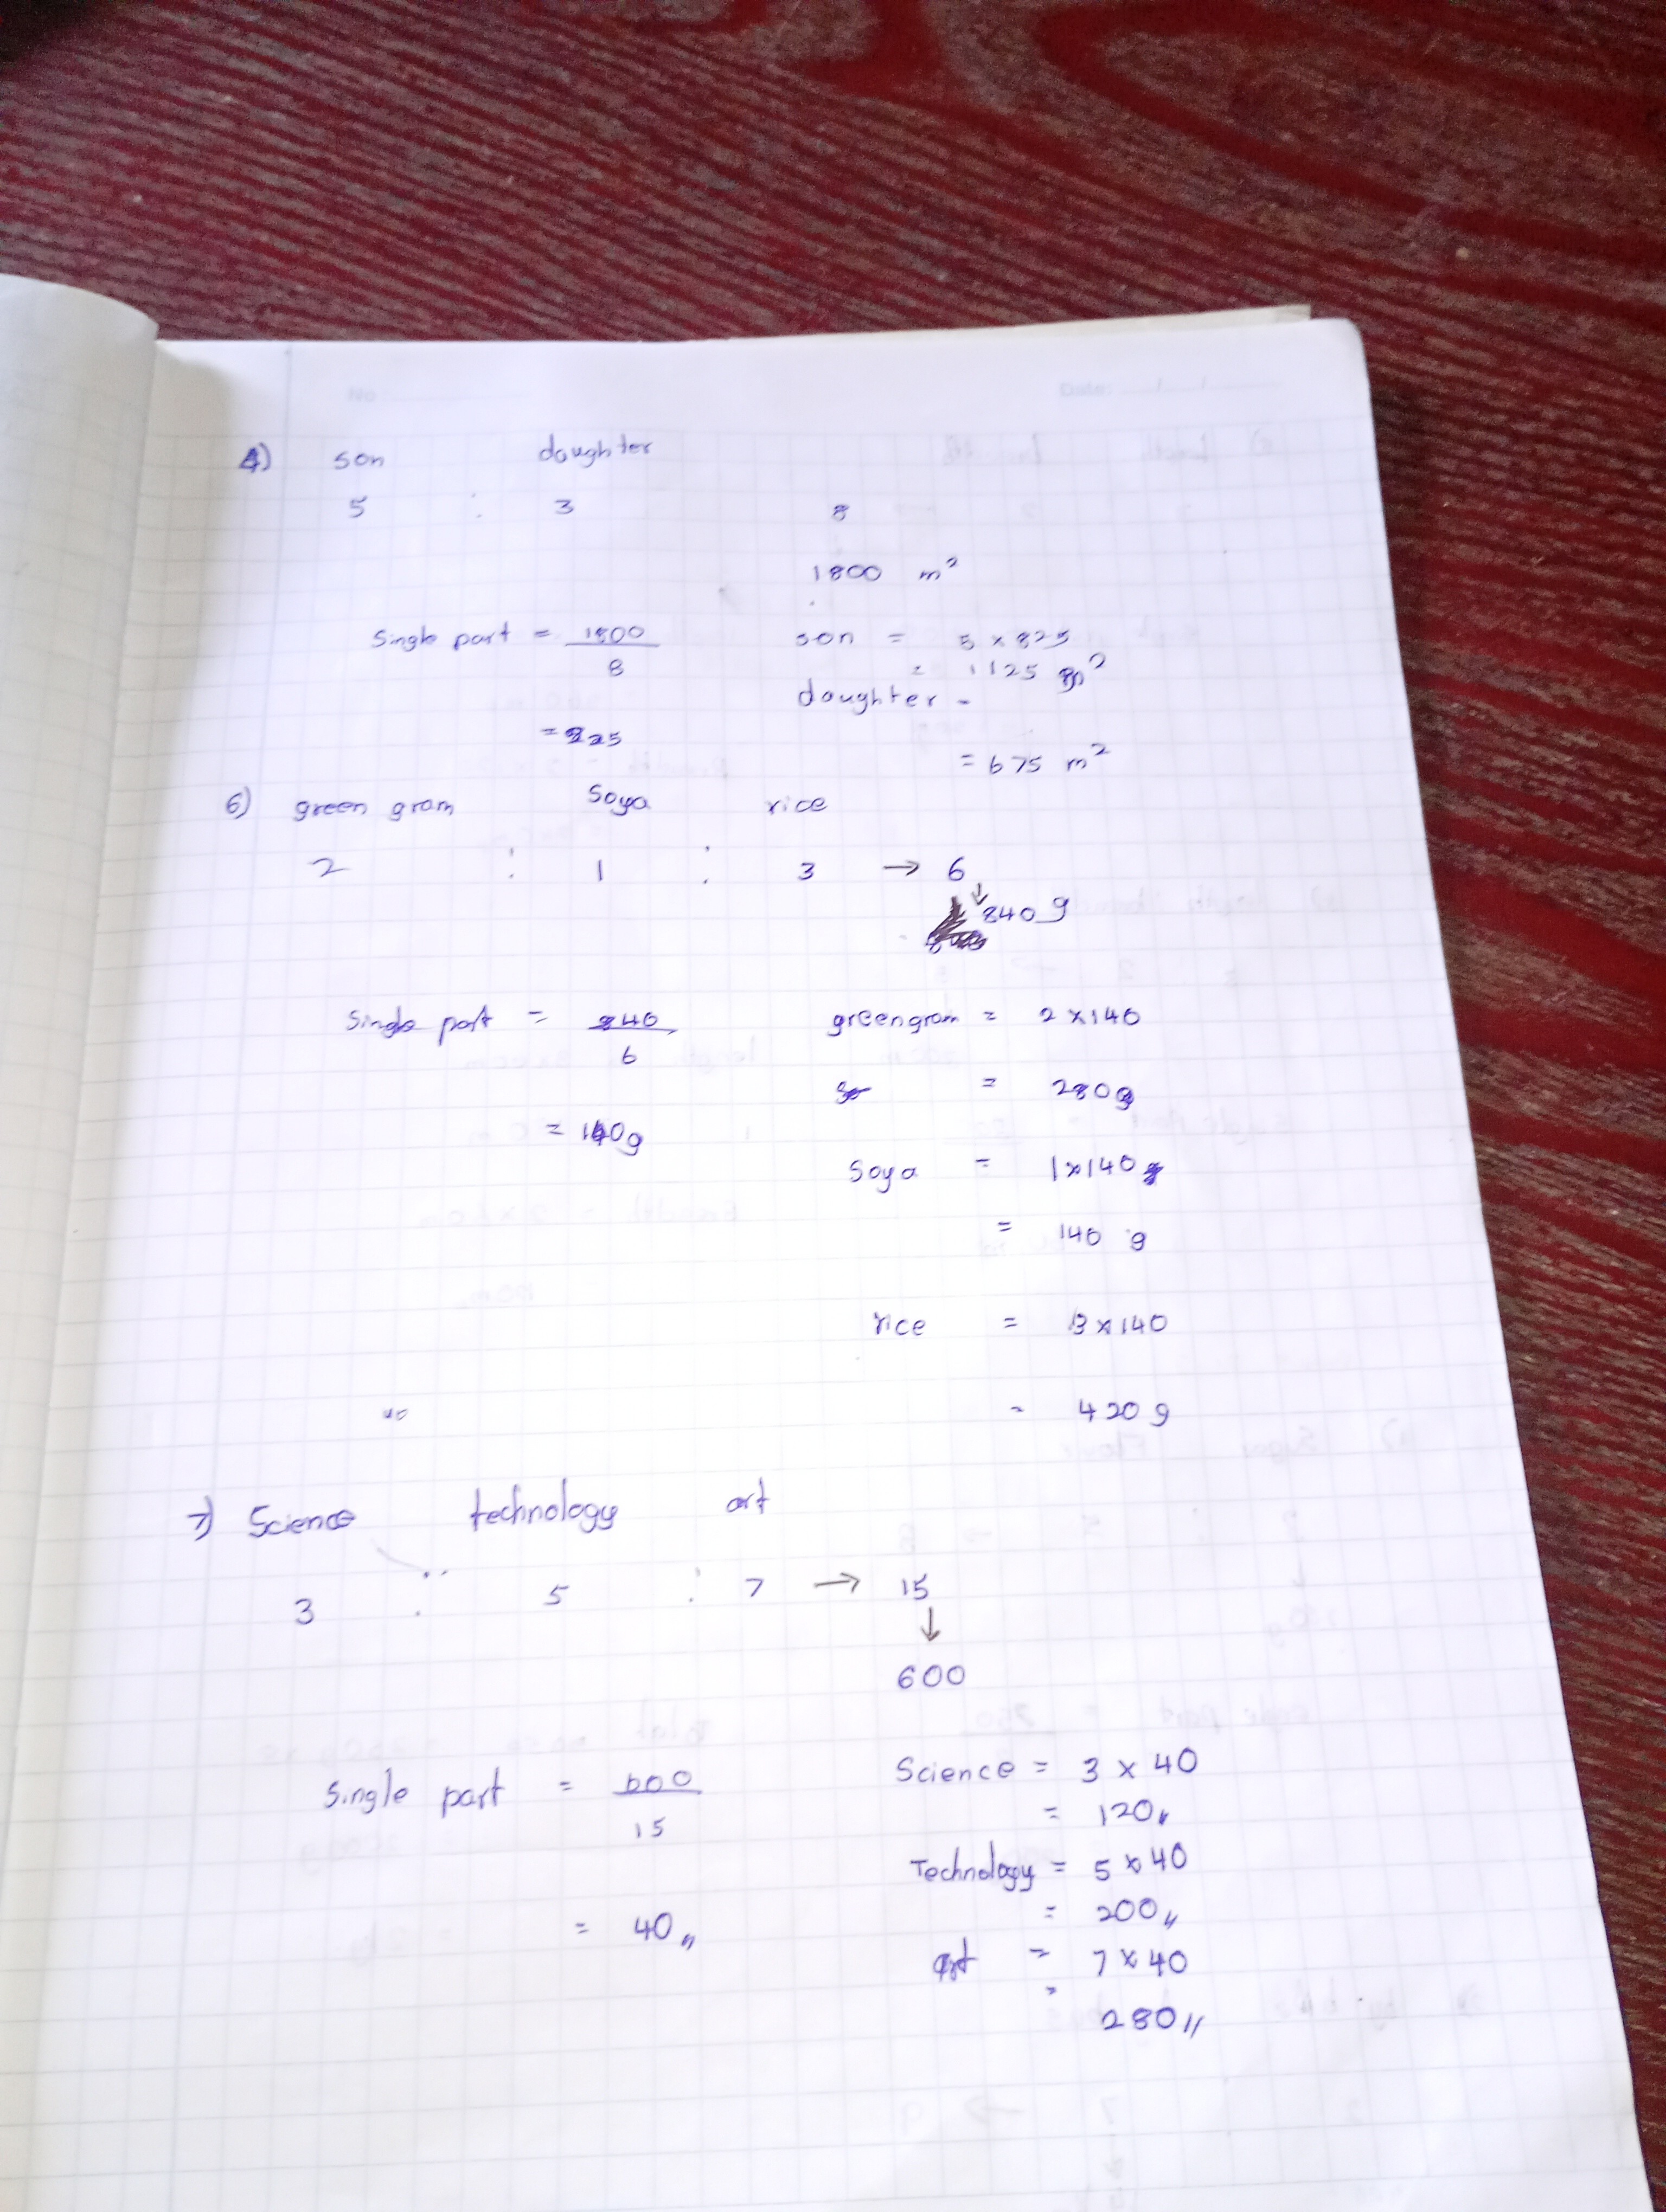 No
Date:
4) son daughter
5 : 3 8
1800 m²
Single part = 1800 / 8
son = 5 × 825
= 1125 m²
daughter =
= 225
= 675 m²
6) green gram Soya rice
2 : 1 : 3 → 6
↓ 840 g
Single part = 840 / 6
green gram = 2 × 140
= 280g
= 140g
Soya = 1 × 140
= 140 g
rice = 3 × 140
= 420 g
7) Science technology art
3 : 5 : 7 → 15
↓
600
Single part = 600 / 15
Science = 3 × 40
= 120,,
Technology = 5 × 40
= 200,,
= 40,,
art = 7 × 40
=
280,,